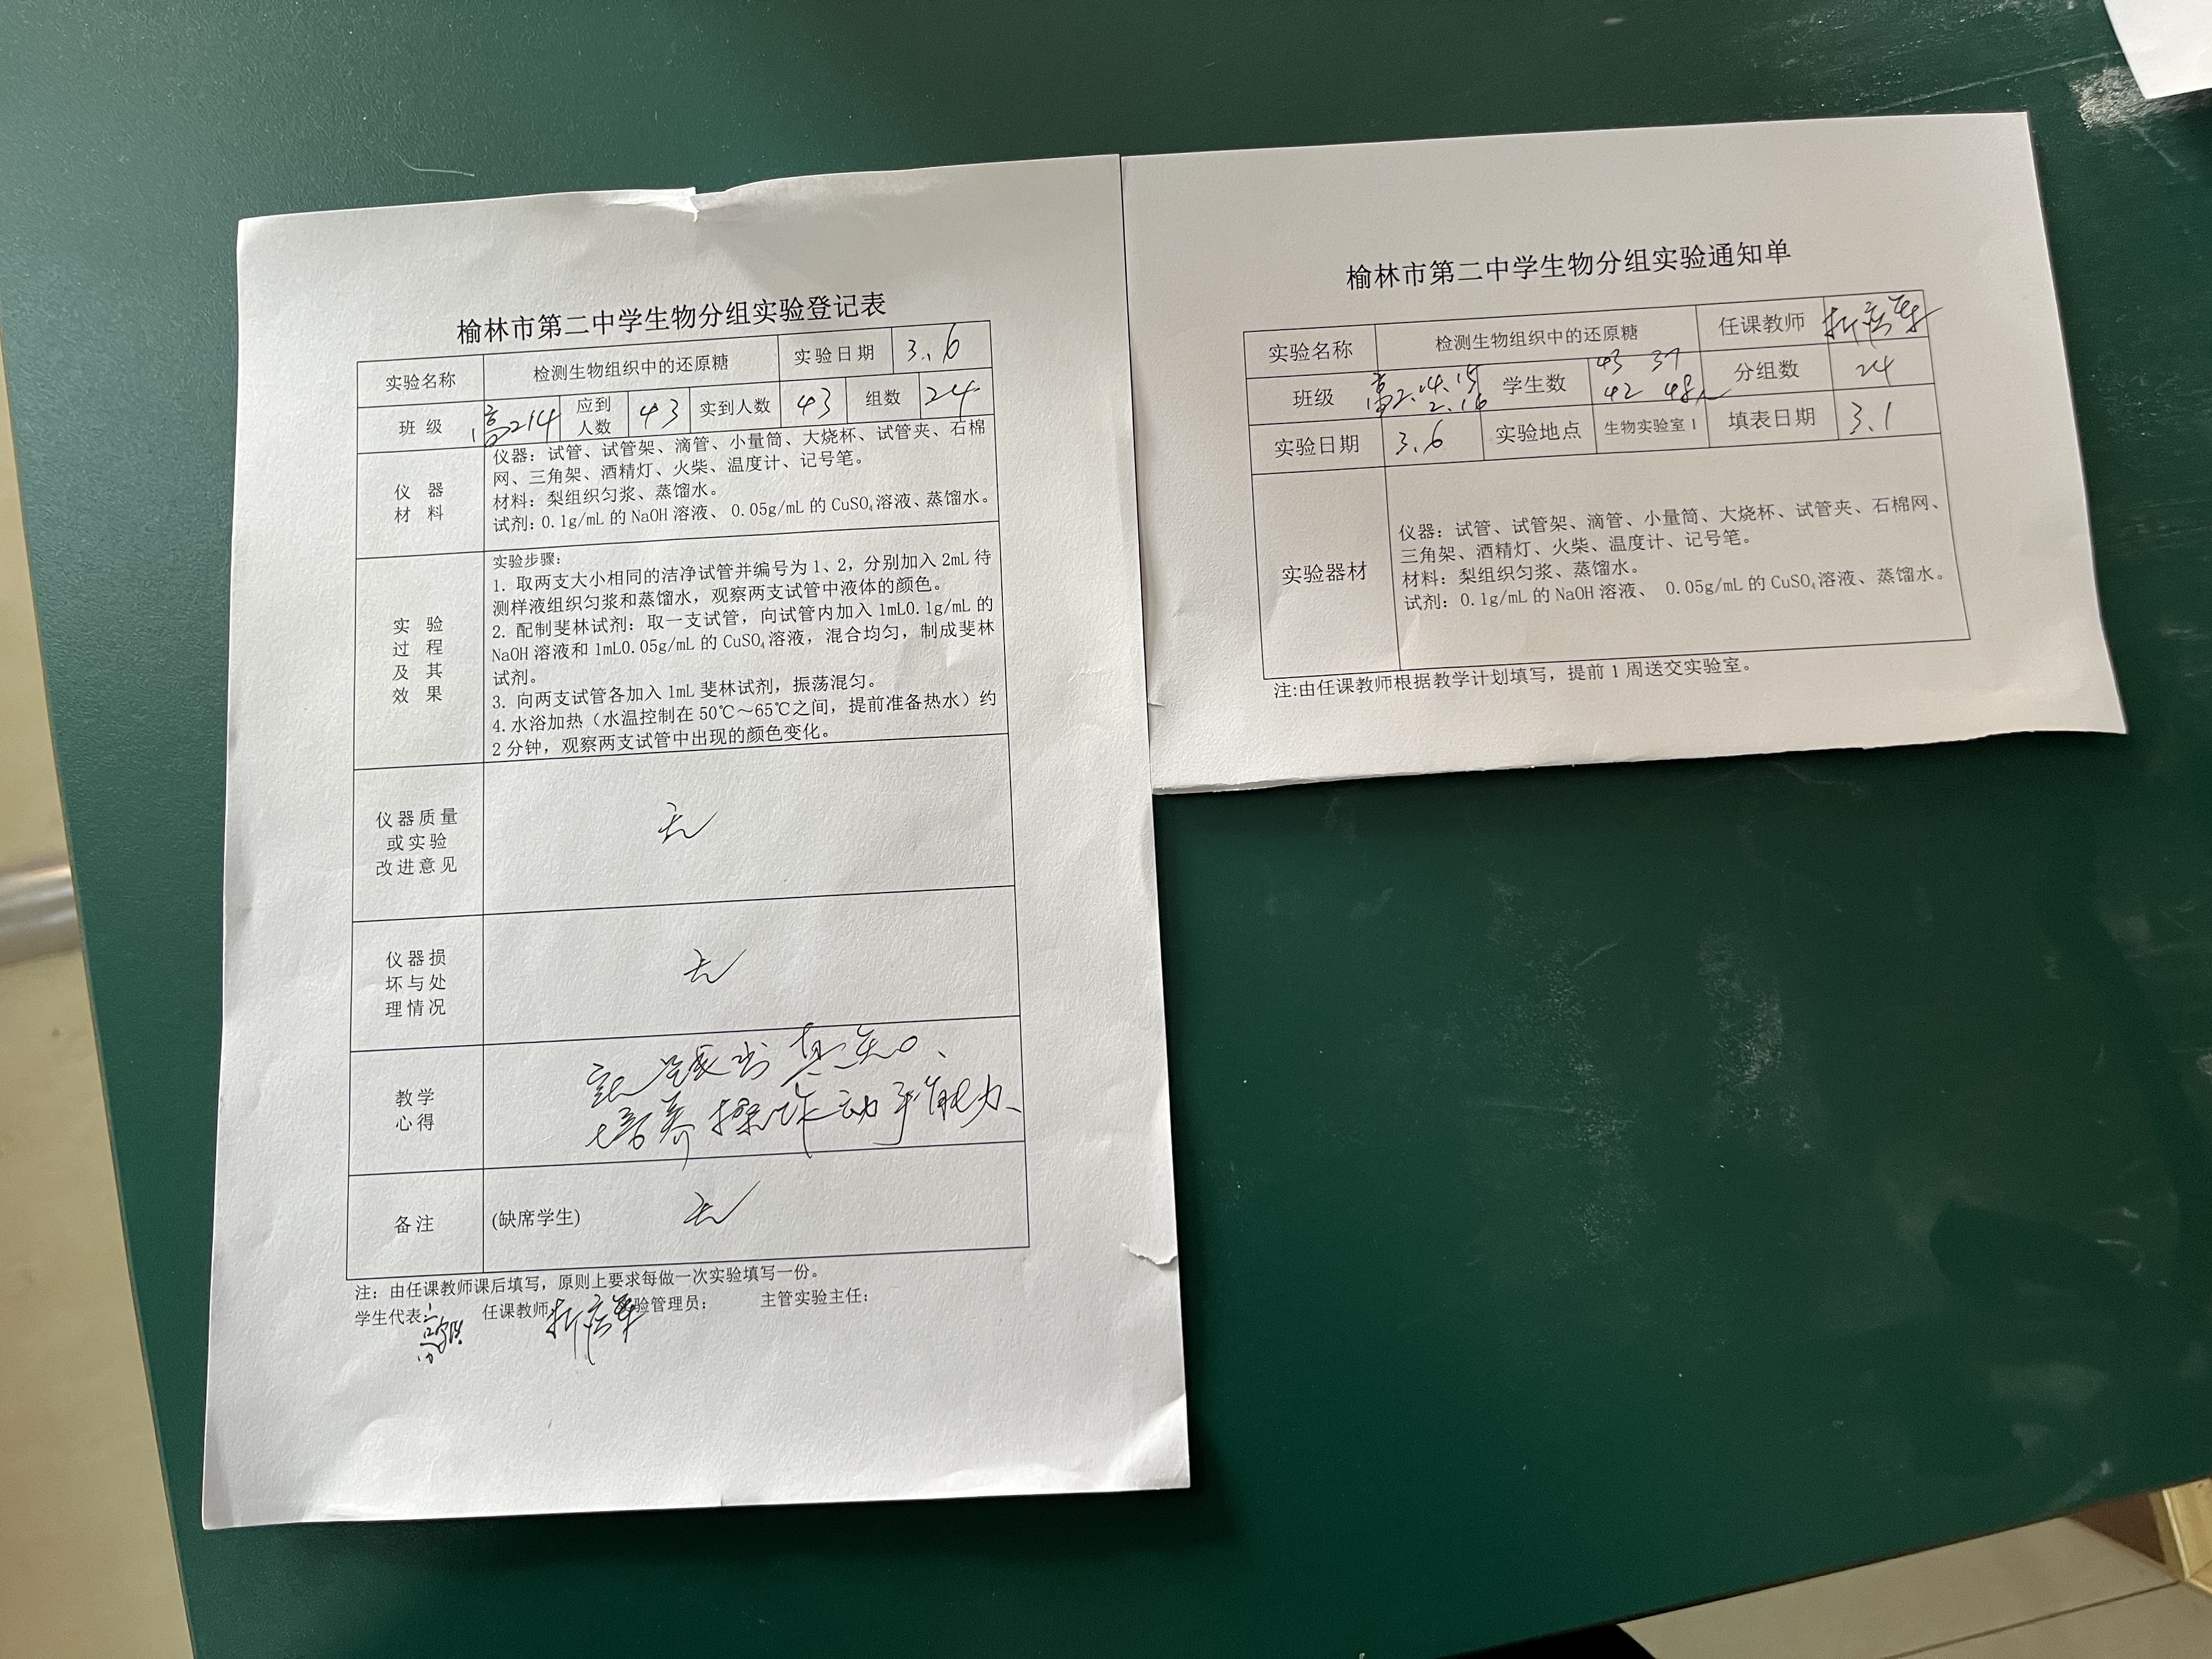 榆林市第二中学生物分组实验登记表
实验名称 检测生物组织中的还原糖 实验日期 3.6
班 级 高2.14 应到人数 43 实到人数 43 组数 24
仪 器
材 料
仪器：试管、试管架、滴管、小量筒、大烧杯、试管夹、石棉
网、三角架、酒精灯、火柴、温度计、记号笔。
材料：梨组织匀浆、蒸馏水。
试剂：0.1g/mL 的 NaOH 溶液、 0.05g/mL 的 CuSO₄溶液、蒸馏水。
实 验
过 程
及 其
效 果
实验步骤：
1. 取两支大小相同的洁净试管并编号为 1、2，分别加入 2mL 待
测样液组织匀浆和蒸馏水，观察两支试管中液体的颜色。
2. 配制斐林试剂：取一支试管，向试管内加入 1mL0.1g/mL 的
NaOH 溶液和 1mL0.05g/mL 的 CuSO₄溶液，混合均匀，制成斐林
试剂。
3. 向两支试管各加入 1mL 斐林试剂，振荡混匀。
4. 水浴加热（水温控制在 50℃～65℃之间，提前准备热水）约
2 分钟，观察两支试管中出现的颜色变化。
仪器质量
或实验
改进意见
无
仪器损
坏与处
理情况
无
教学
心得
培养操作动手能力、
备注 (缺席学生) 无
注：由任课教师课后填写，原则上要求每做一次实验填写一份。
学生代表： 任课教师 验管理员： 主管实验主任：
榆林市第二中学生物分组实验通知单
实验名称 检测生物组织中的还原糖 任课教师
班级 高2.14.15 2.16 学生数 43 37 42 48人 分组数 24
实验日期 3.6 实验地点 生物实验室 1 填表日期 3.1
实验器材
仪器：试管、试管架、滴管、小量筒、大烧杯、试管夹、石棉网、
三角架、酒精灯、火柴、温度计、记号笔。
材料：梨组织匀浆、蒸馏水。
试剂：0.1g/mL 的 NaOH 溶液、 0.05g/mL 的 CuSO₄溶液、蒸馏水。
注:由任课教师根据教学计划填写，提前 1 周送交实验室。